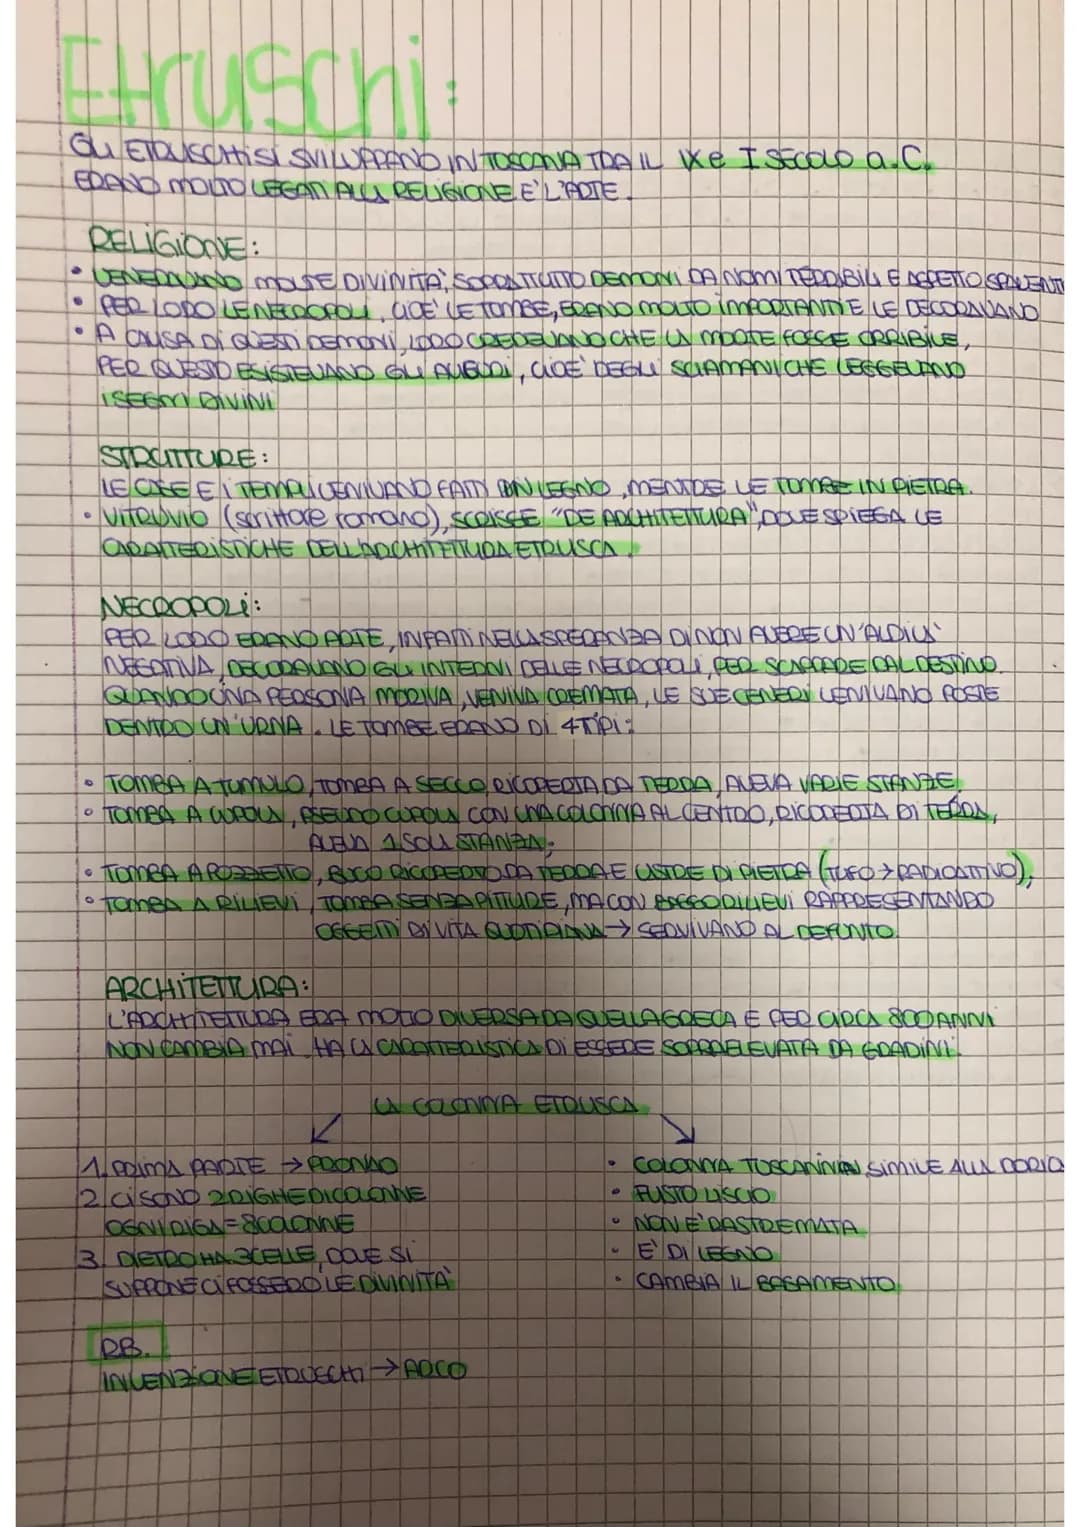 Etruschi:
GLI ETRUSCHI SI SVILUPPANO IN TOSCANA TRA IL IX e I SECOLO a.C.
ERANO MOLTO LEGATI ALLA RELIGIONE E L'ARTE.
RELIGIONE:
• VENERAVANO MOLTE DIVINITA', SOPRATTUTTO DEMONI DA NOMI TERRIBILI E ASPETTO SPAVENT
• PER LORO LE NECROPOLI, CIOE' LE TOMBE, ERANO MOLTO IMPORTANTI E LE DECORAVANO
• A CAUSA DI QUESTI DEMONI, LORO CREDEVANO CHE LA MORTE FOSSE ORRIBILE,
PER QUESTO ESISTEVANO GLI AUGURI, CIOE' DEGLI SCIAMANI CHE LEGGEVANO
I SEGNI DIVINI
STRUTTURE:
LE CASE E I TEMPLI VENIVANO FATTI CON LEGNO, MENTRE LE TOMBE IN PIETRA.
• VITRUVIO (scrittore romano), SCRISSE "DE ARCHITETTURA", DOVE SPIEGA LE
CARATTERISTICHE DELL'ARCHITETTURA ETRUSCA.
NECROPOLI:
PER LORO ERANO ARTE, INFATTI NELLA SPERANZA DI NON AVERE UN'ALDILA'
NEGATIVA, DECORAVANO GLI INTERNI DELLE NECROPOLI, PER SCAPPARE DAL DESTINO.
QUANDO UNA PERSONA MORIVA, VENIVA CREMATA, LE SUE CENERI VENIVANO POSTE
DENTRO UN'URNA. LE TOMBE ERANO DI 4 TIPI:
• TOMBA A TUMULO, TOMBA A SECCO RICOPERTA DA TERRA, AVEVA VARIE STANZE,
• TOMBA A CUPOLA, PSEUDO CUPOLA CON UNA COLONNA AL CENTRO, RICOPERTA DI TERRA,
AVEVA 1 SOLA STANZA;
• TOMBA A POZZETTO, BUCO RICOPERTO DA TERRA E LASTRE DI PIETRA (TUFO → RADIOATTIVO);
• TOMBA A RILIEVI, TOMBA SENZA PITTURE, MA CON BASSORILIEVI RAPPRESENTANDO
OGGETTI DI VITA QUOTIDIANA → SERVIVANO AL DEFUNTO.
ARCHITETTURA:
L'ARCHITETTURA ERA MOLTO DIVERSA DA QUELLA GRECA E PER CIRCA 800 ANNI
NON CAMBIA MAI. HA LA CARATTERISTICA DI ESSERE SOPRAELEVATA DA GRADINI.
LA COLONNA ETRUSCA
1. PRIMA PARTE → PRONAO
2. CI SONO 2 RIGHE DI COLONNE
OGNI RIGA = 8 COLONNE
3. DIETRO HA 3 CELLE, DOVE SI
SUPPONE CI FOSSERO LE DIVINITA'
• COLONNA TUSCANINA SIMILE ALLA DORIC
• FUSTO LISCIO
• NON E' RASTREMATA
• E' DI LEGNO
• CAMBIA IL BASAMENTO
RB.
INVENZIONE ETRUSCHI → ARCO